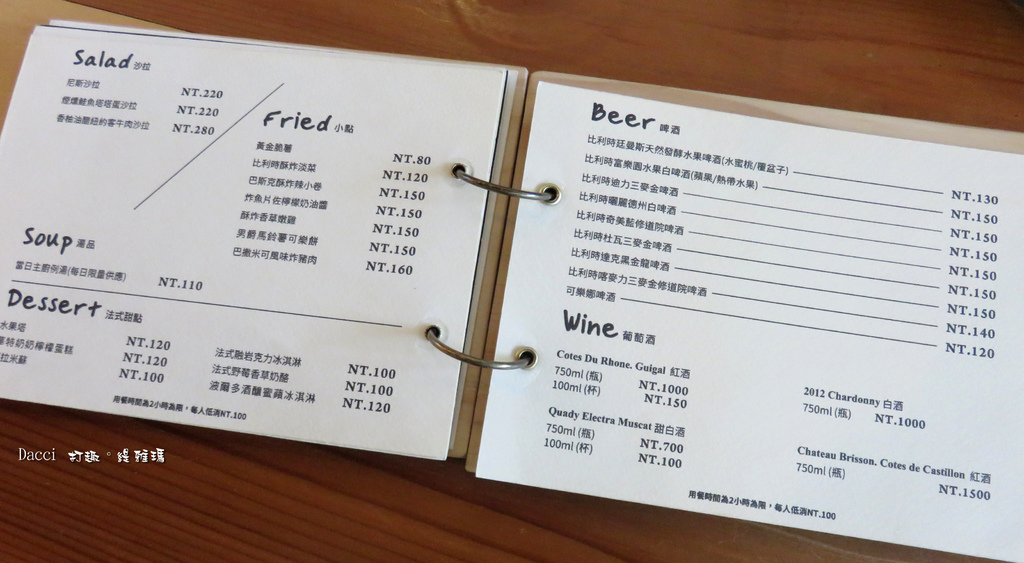 Salad 沙拉
尼斯沙拉 NT.220
煙燻鮭魚塔塔蛋沙拉 NT.220
香柚油醋紐約客牛肉沙拉 NT.280
Fried 小點
黃金脆薯 NT.80
比利時酥炸淡菜 NT.120
巴斯克酥炸辣小卷 NT.150
炸魚片佐檸檬奶油醬 NT.150
酥炸香草嫩雞 NT.150
男爵馬鈴薯可樂餅 NT.150
巴撒米可風味炸豬肉 NT.160
Soup 湯品
當日主廚例湯(每日限量供應) NT.110
Dessert 法式甜點
水果塔 NT.120
特奶奶檸檬蛋糕 NT.120
拉米酥 NT.100
法式融岩克力冰淇淋 NT.100
法式野莓香草奶酪 NT.100
波爾多酒釀蜜蘋冰淇淋 NT.120
用餐時間為2小時為限，每人低消NT.100
Beer 啤酒
比利時廷曼斯天然發酵水果啤酒(水蜜桃/覆盆子) NT.130
比利時富樂園水果白啤酒(蘋果/熱帶水果) NT.150
比利時迪力三麥金啤酒 NT.150
比利時曬麗德州白啤酒 NT.150
比利時奇美藍修道院啤酒 NT.150
比利時杜瓦三麥金啤酒 NT.150
比利時達克黑金龍啤酒 NT.150
比利時喀麥力三麥金修道院啤酒 NT.140
可樂娜啤酒 NT.120
Wine 葡萄酒
Cotes Du Rhone. Guigal 紅酒
750ml (瓶) NT.1000
100ml (杯) NT.150
Quady Electra Muscat 甜白酒
750ml (瓶) NT.700
100ml (杯) NT.100
2012 Chardonny 白酒
750ml (瓶) NT.1000
Chateau Brisson. Cotes de Castillon 紅酒
750ml (瓶) NT.1500
用餐時間為2小時為限，每人低消NT.100
Dacci 打趣。緹雅瑪